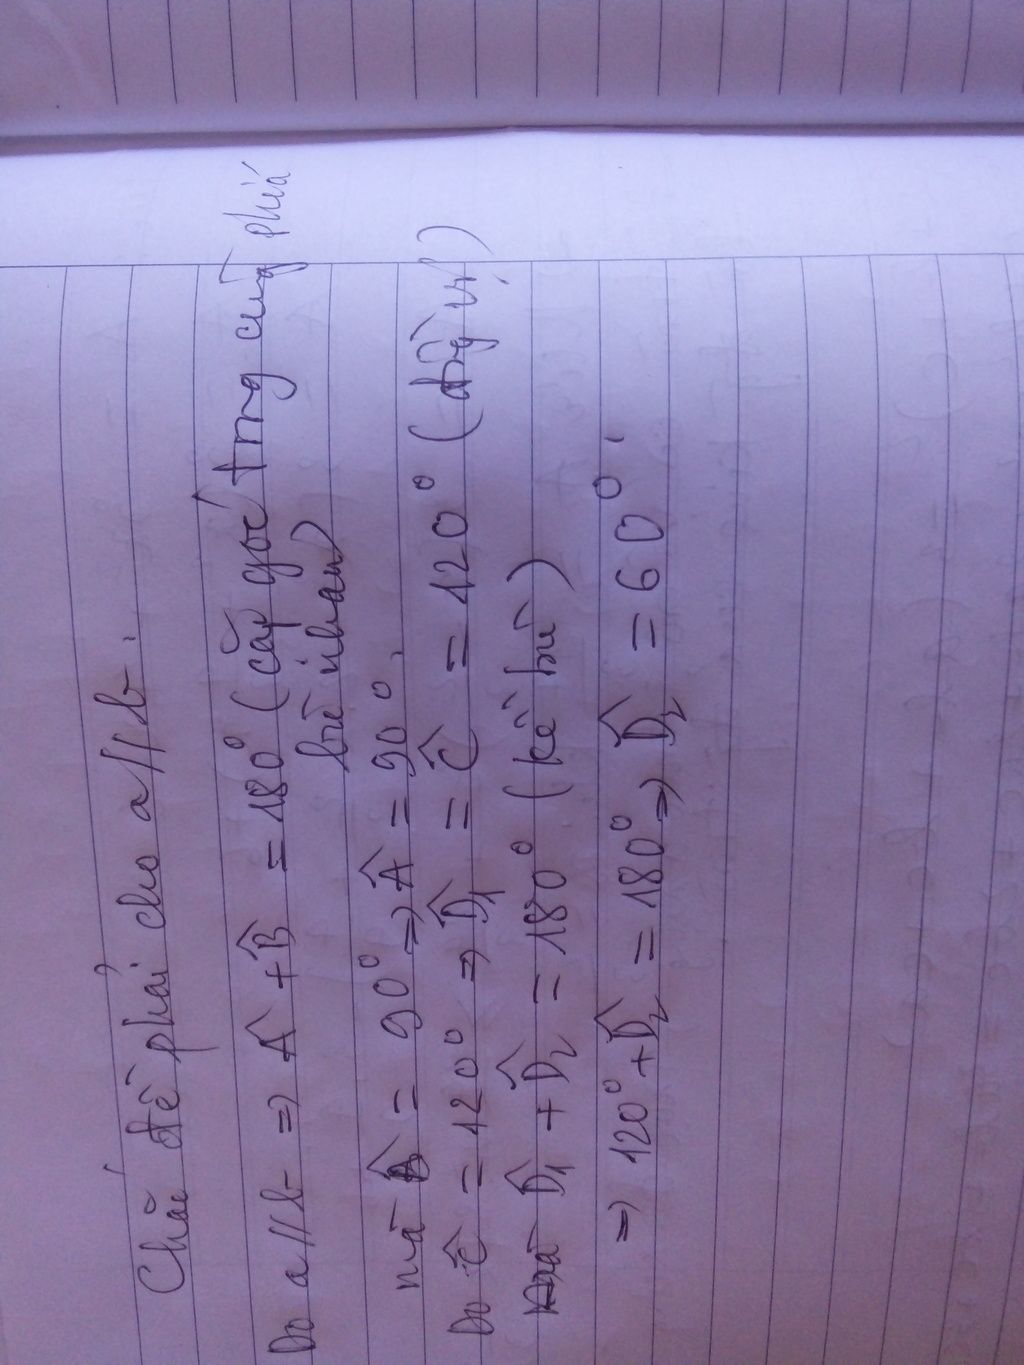 Chắc đề phải cho a//b.
Do a//b => Â + B̂ = 180° (cặp góc trong cùng phía
bù nhau)
mà B̂ = 90° => Â = 90°.
Do Ĉ = 120° => D̂₁ = Ĉ = 120° (đồng vị)
D̂₁ + D̂₂ = 180° (kề bù)
=> 120° + D̂₂ = 180° => D̂₂ = 60°.